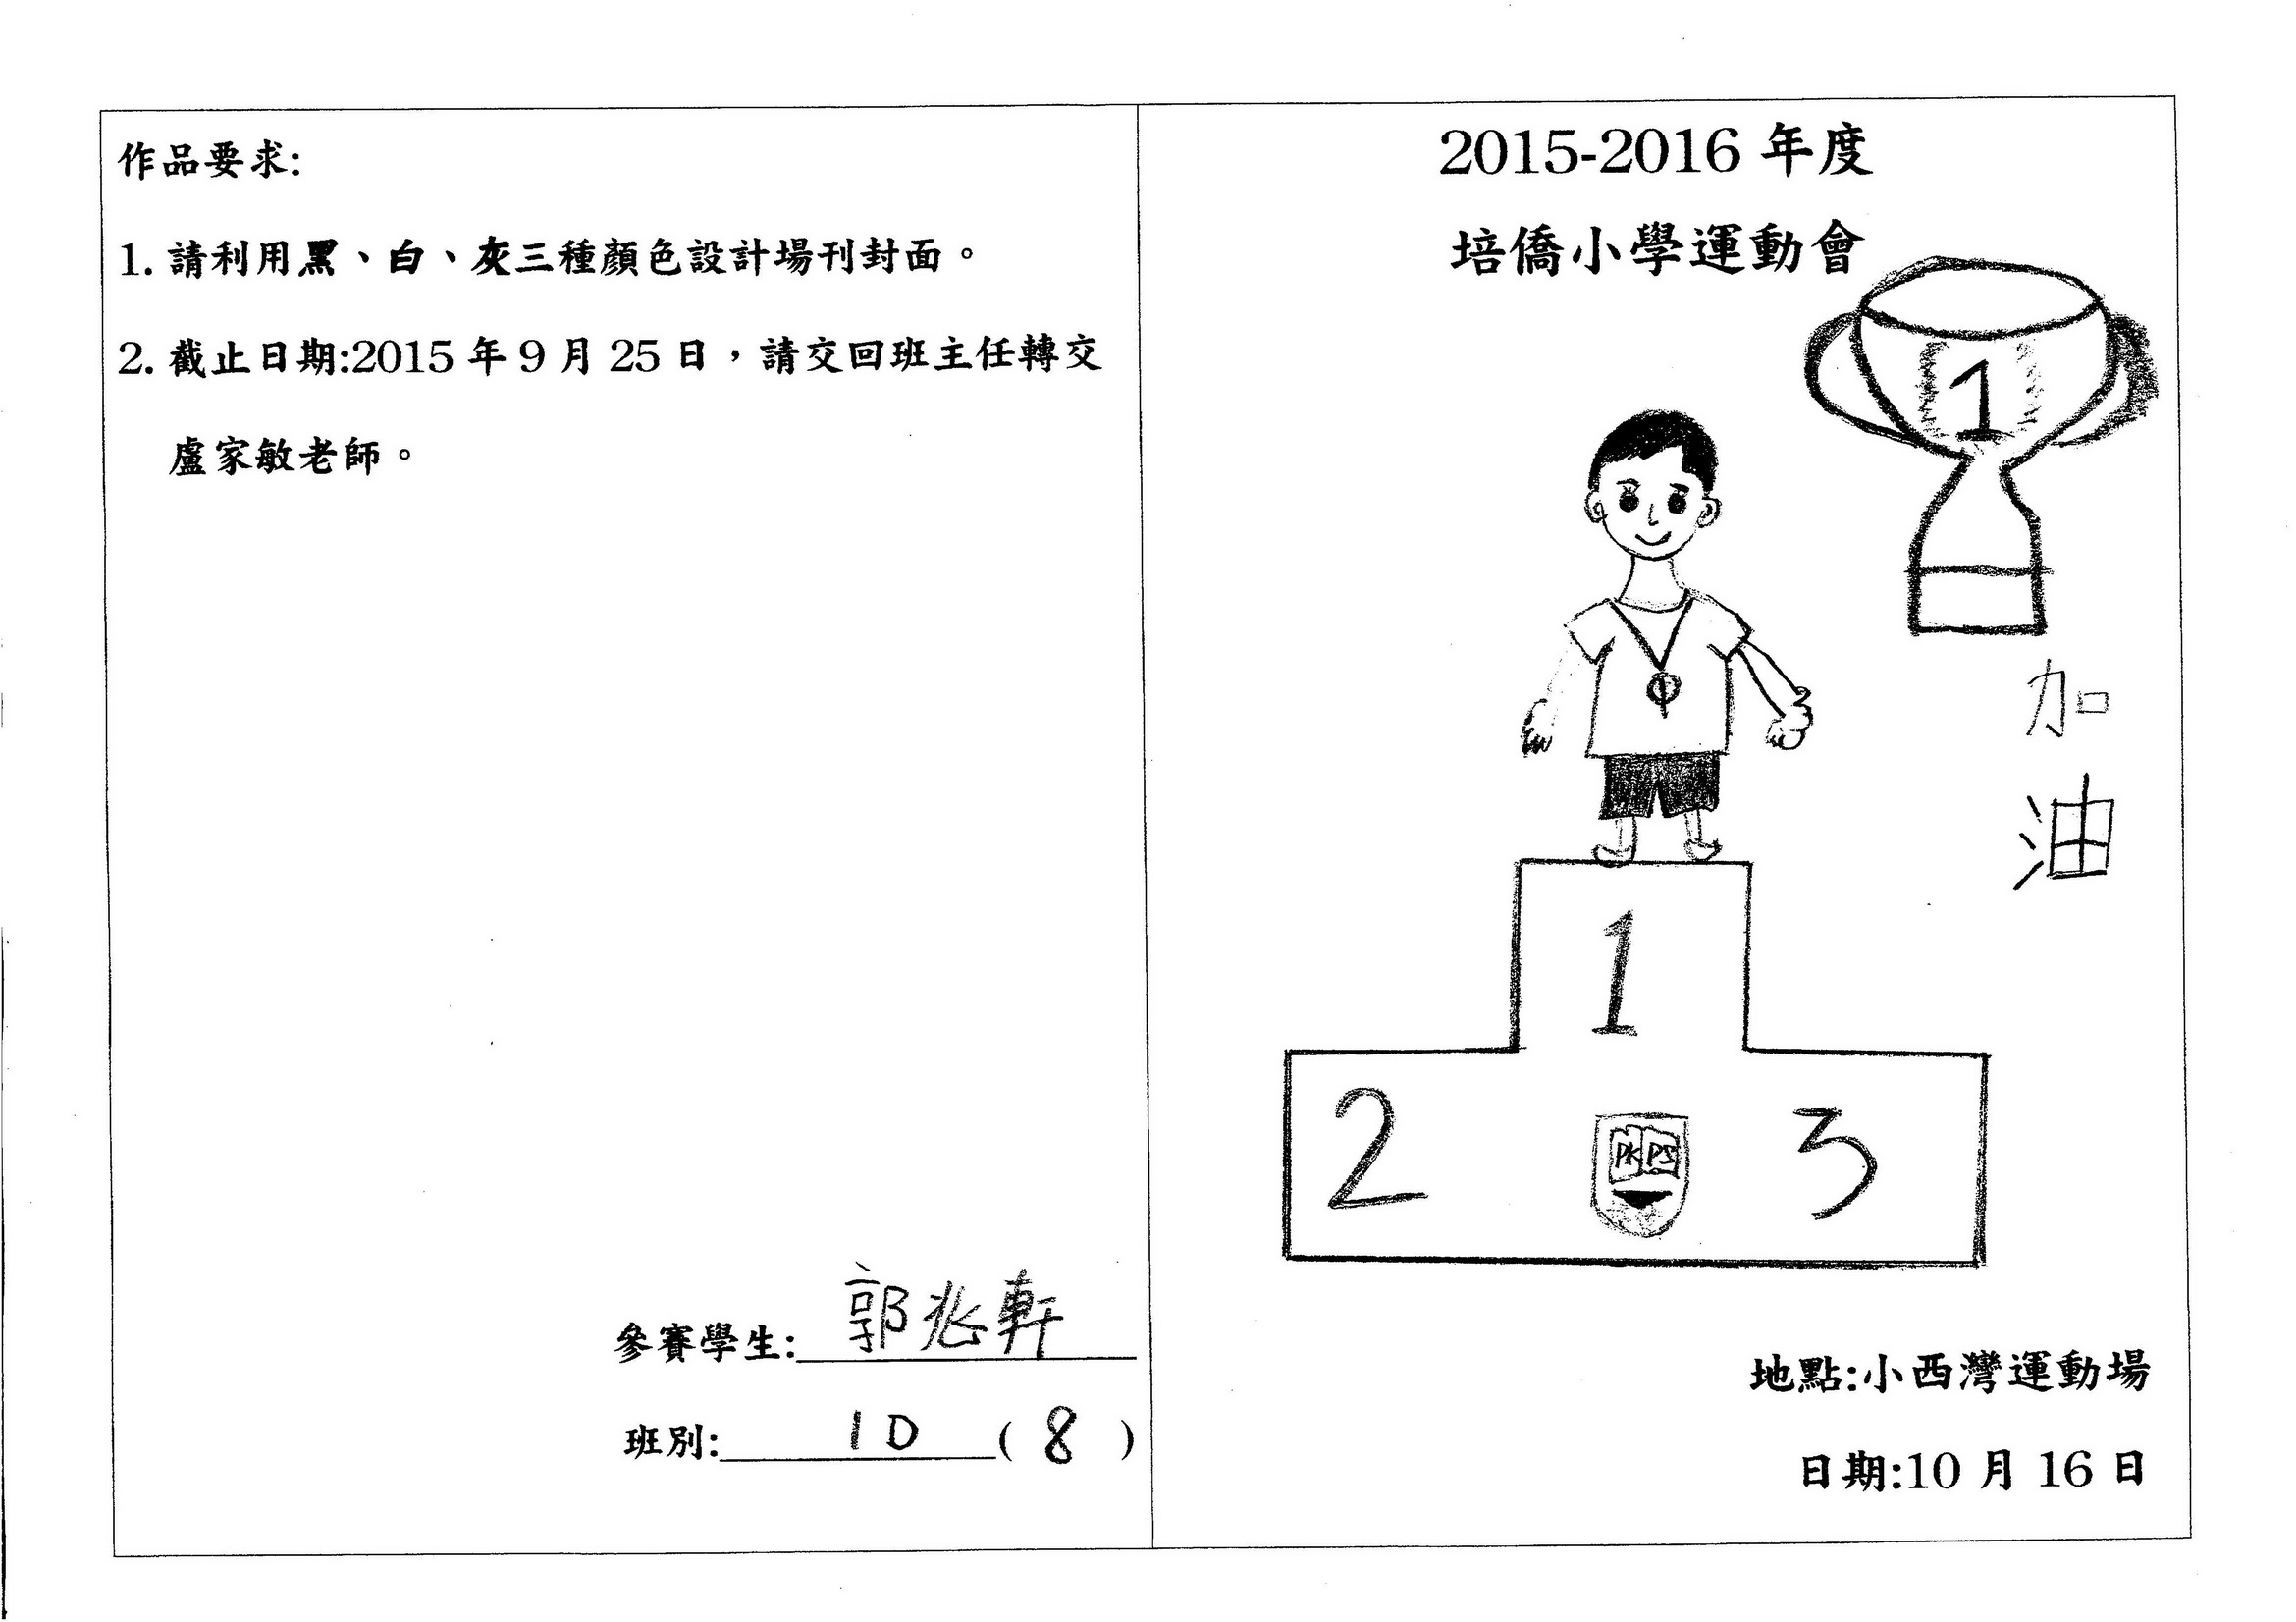 作品要求:
1. 請利用黑、白、灰三種顏色設計場刊封面。
2. 截止日期:2015 年 9 月 25 日，請交回班主任轉交
盧家敏老師。
參賽學生: 郭兆軒
班別: 1D ( 8 )
2015-2016 年度
培僑小學運動會
1
加
油
1
2
PK PS
3
地點:小西灣運動場
日期:10 月 16 日